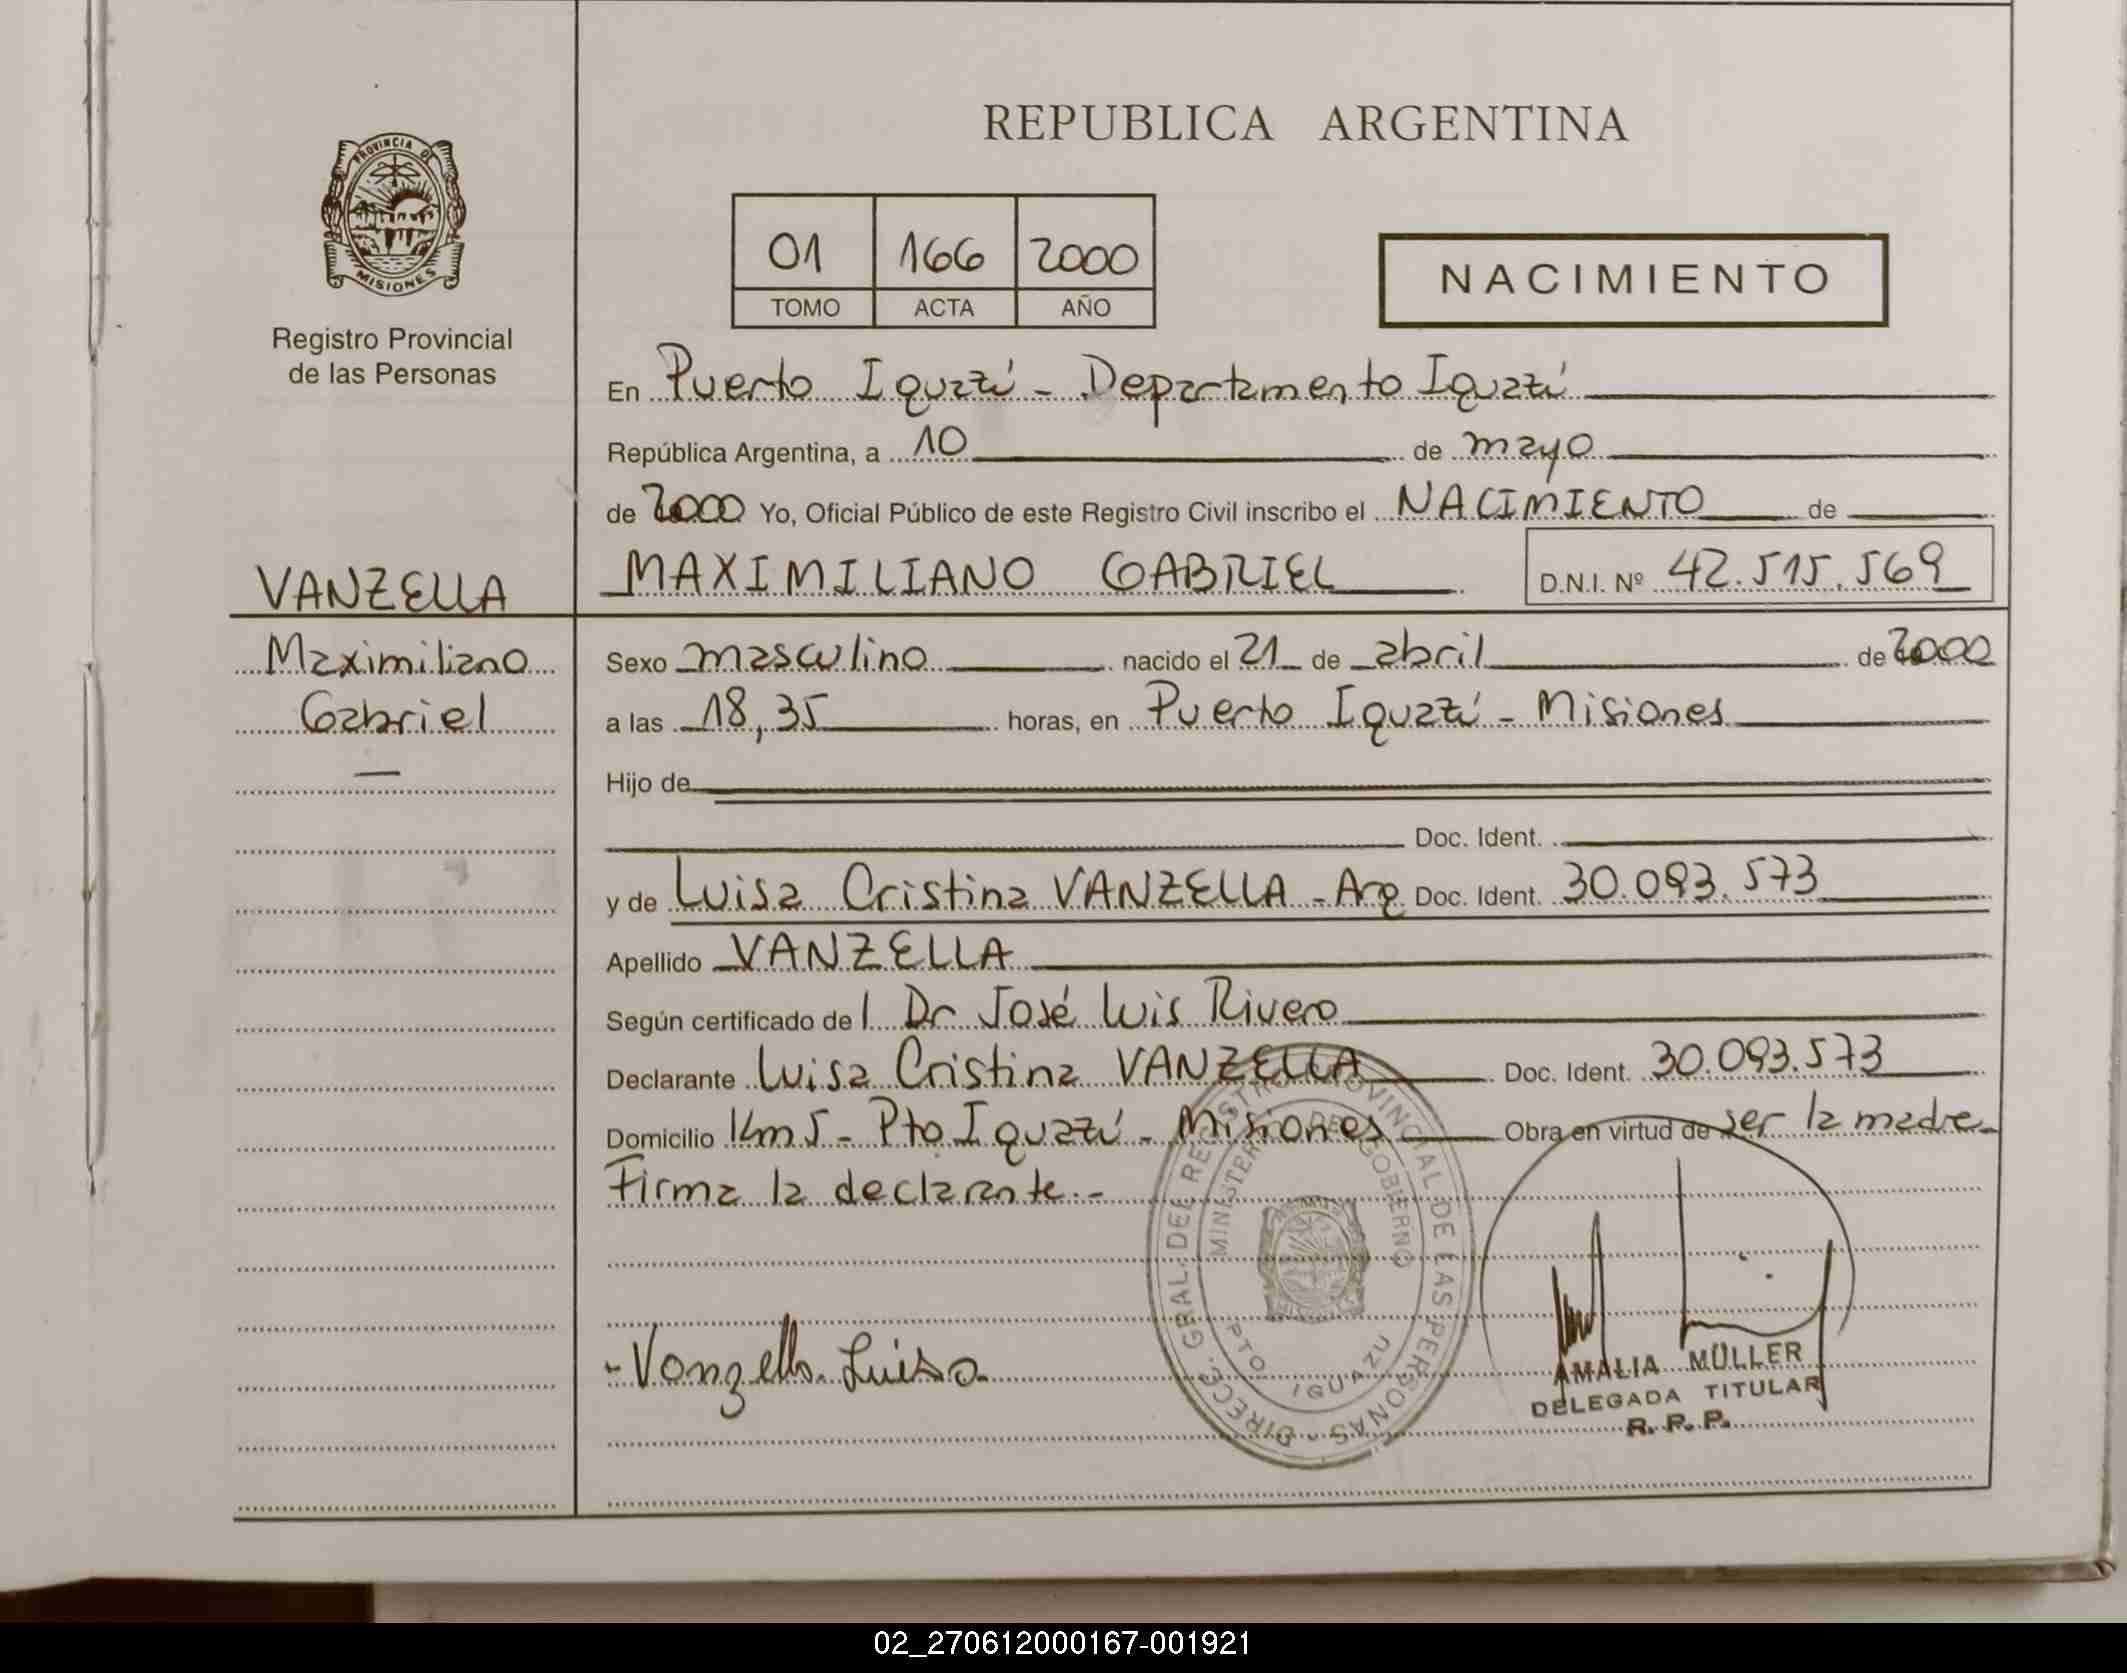 REPUBLICA ARGENTINA
PROVINCIA DE
MISIONES
Registro Provincial
de las Personas
01 166 2000
TOMO ACTA AÑO
NACIMIENTO
En Puerto Iguazú - Departamento Iguazú
República Argentina, a 10 de mayo
de 2000 Yo, Oficial Público de este Registro Civil inscribo el NACIMIENTO de
VANZELLA
Maximiliano
Gabriel
MAXIMILIANO GABRIEL D.N.I. Nº 42.515.569
Sexo masculino nacido el 21 de abril de 2000
a las 18,35 horas, en Puerto Iguazú - Misiones
Hijo de
Doc. Ident.
y de Luisa Cristina VANZELLA - Arg Doc. Ident. 30.093.573
Apellido VANZELLA
Según certificado de l Dr José Luis Rivero
Declarante Luisa Cristina VANZELLA Doc. Ident. 30.093.573
Domicilio Km 5 - Pto Iguazú - Misiones Obra en virtud de ser la madre
Firma la declarante.-
- Vanzella Luisa
DIRECC. GRAL. DEL REGISTRO PROVINCIAL DE LAS PERSONAS -
MINISTERIO DE GOBIERNO
PTO IGUAZU
AMALIA MÜLLER
DELEGADA TITULAR
R. P. P.
02_270612000167-001921